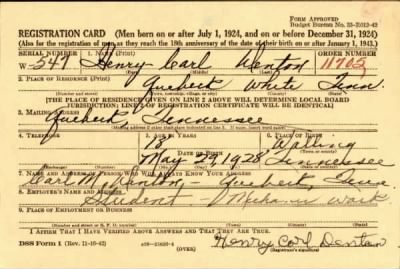 FORM APPROVED
REGISTRATION CARD (Men born on or after July 1, 1924, and on or before December 31, 1924)
(Also for the registration of men as they reach the 18th anniversary of the date of their birth on or after January 1, 1943.)
SERIAL NUMBER 1. NAME (Print) ORDER NUMBER
W-349 Henry Carl Denton 11705
2. PLACE OF RESIDENCE (Print)
Quebeck White Tenn.
(Town, township, village, or city) (County) (State)
[THE PLACE OF RESIDENCE GIVEN ON LINE 2 ABOVE WILL DETERMINE LOCAL BOARD
JURISDICTION; LINE 2 OF REGISTRATION CERTIFICATE WILL BE IDENTICAL]
3. MAILING ADDRESS
Quebeck Tennessee
4. TELEPHONE 5. AGE IN YEARS 6. PLACE OF BIRTH
18 Walling
DATE OF BIRTH
May 29, 1928 Tennessee
7. NAME AND ADDRESS OF PERSON WHO WILL ALWAYS KNOW YOUR ADDRESS
Denton - Quebeck, Tenn.
8. EMPLOYER'S NAME AND ADDRESS
Student - Mechanic Work
9. PLACE OF EMPLOYMENT OR BUSINESS
I AFFIRM THAT I HAVE VERIFIED ABOVE ANSWERS AND THAT THEY ARE TRUE.
DSS Form 1 (Rev. 11-16-42) (OVER) Henry Carl Denton
(Registrant's signature)